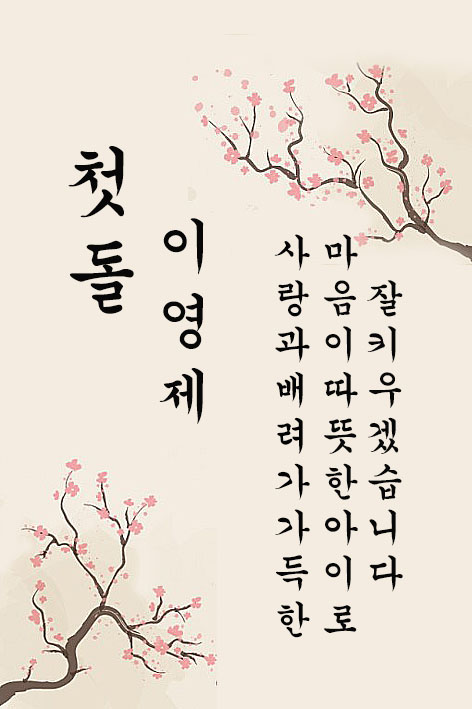 첫돌
이영제
사랑과배려가가득한
마음이따뜻한아이로
잘키우겠습니다